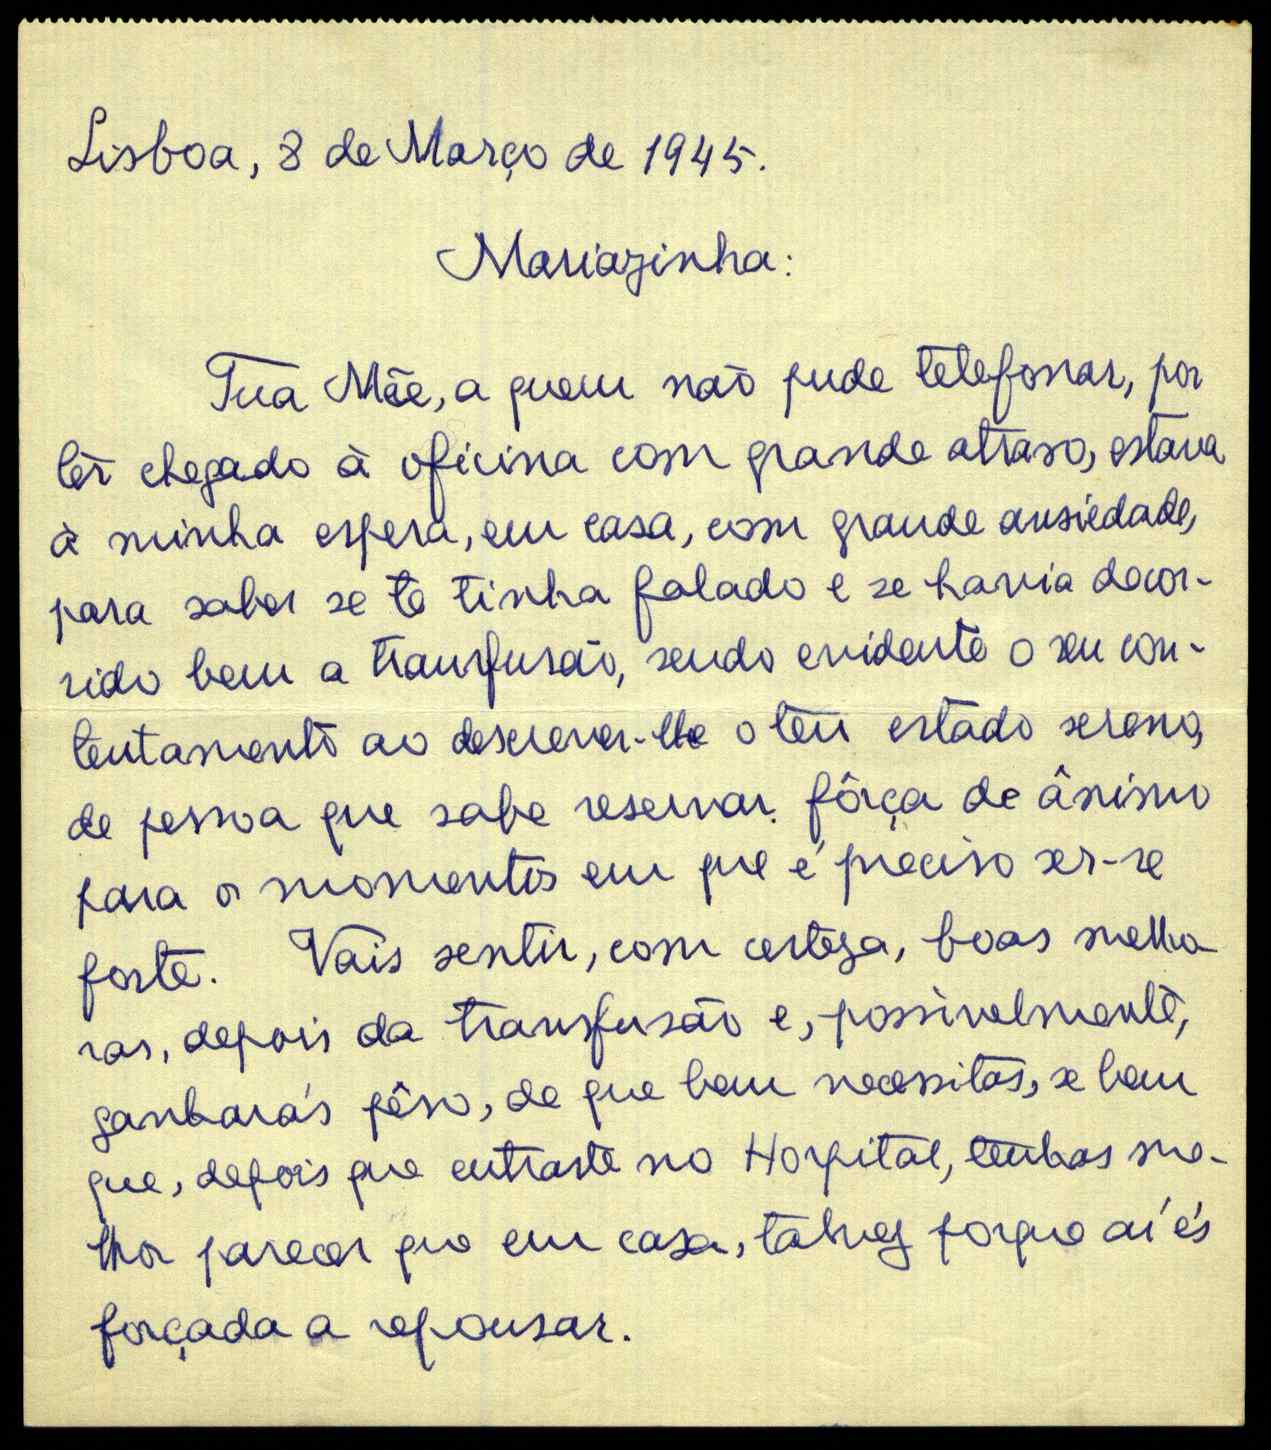 Lisboa, 8 de Março de 1945.
Mariazinha:
Tua Mãe, a quem não pude telefonar, por
têr chegado à oficina com grande atraso, estava
à minha espera, em casa, com grande ansiedade,
para saber se te tinha falado e se havia decor-
rido bem a transfusão, sendo evidente o seu con-
tentamento ao descrever-lhe o teu estado sereno,
de pessoa que sabe reservar fôrça de ânimo
para os momentos em que é preciso ser-se
forte. Vais sentir, com certeza, boas melho-
ras, depois da transfusão e, possìvelmente,
ganharás pêso, de que bem necessitas, se bem
que, depois que entraste no Hospital, tenhas me-
lhor parecer que em casa, talvez porque aí és
forçada a repousar.